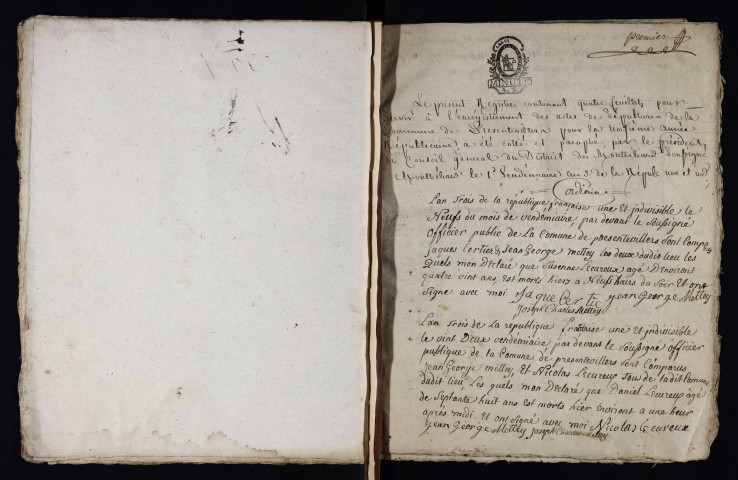 premier
MINUTE
Le present Registre contenant quatre feuillets pour
servir à l'enregistrement des actes de sépultures de la
Commune de Presentevillers pour la troisième année
Républicaine a été coté et paraphé par le président
du Conseil général du District de Montbéliard soussigné
Montbéliard le 1er Vendémiaire an 3e de la Répub. une et ind.
Cordienne
Lan Trois de la république française une Et indivisible le
Neufs du mois de vendémiaire par devant le Soussigné
officier public de La Comune de presentevillers Sont Comparus
jaques Certier & Jean George mettey les deux dudit lieu les
Quels mon Déclaré que Susenne Leureux agé Denviront
quatre vint ans, est morts hierz a Neufs heurs du Soir Et ont
Signe avec moi Jaque Certie jean George Mettey
Joseph Charles Mettey
Lan Trois de La république francaise une et jndivisible
le vint Deux vendemiaire par devant le Soussigné officier
publique de la Comune de presentevillers Sont Comparus
jean George mettey, Et Nicolas Leureux Tous de la dit Comune
dudit lieu Les quels mon Déclaré que Daniel Leureux agé
de Septante huit ans est morts hier Environt a une heur
après midi, et ont Signé avec moi Nicolas Leureux
jean George Mettey Joseph Charles Mettey